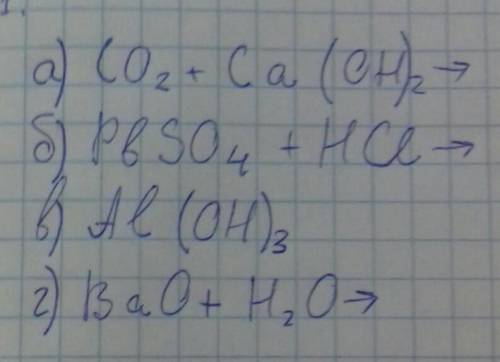 а) CO₂ + Ca(OH)₂ →
б) PbSO₄ + HCl →
в) Al(OH)₃
г) BaO + H₂O →